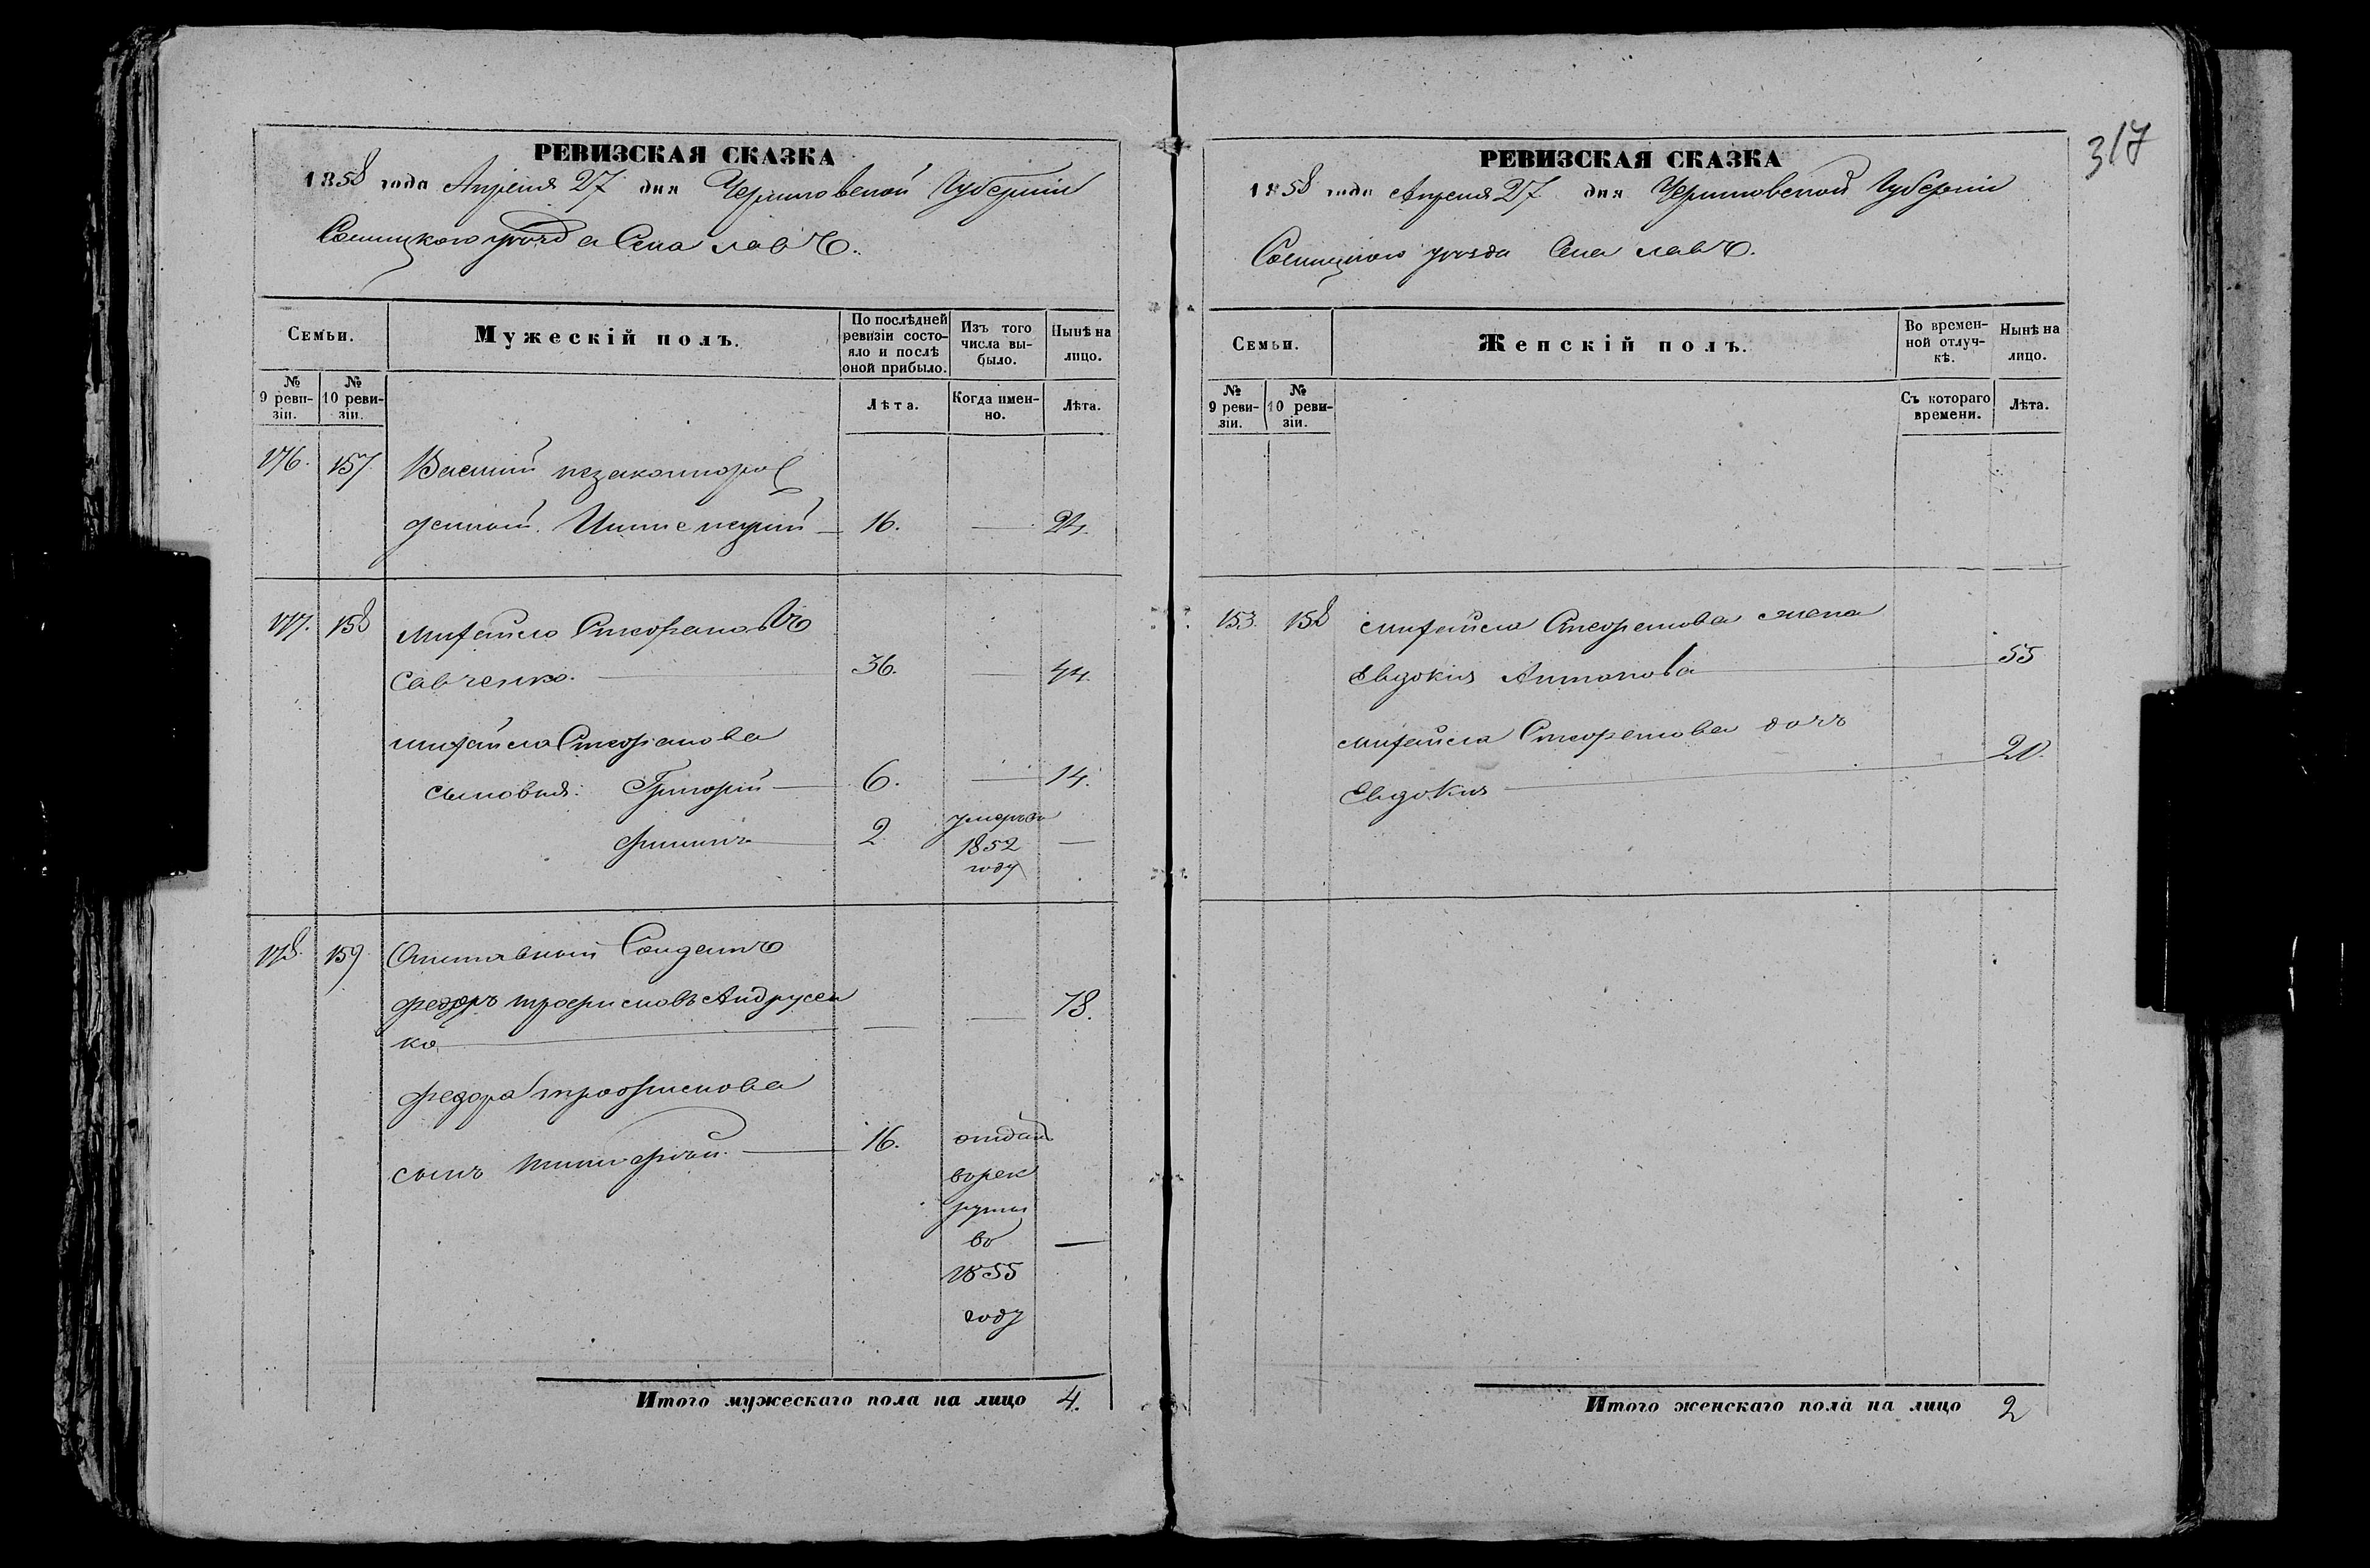 317
РЕВИЗСКАЯ СКАЗКА
1858 года Апреля 27 дня Черниговской Губернии
Сосницкого уезда Села Лавъ.
Семьи.
Мужескій полъ.
По послѣдней ревизіи состояло и послѣ оной прибыло.
Изъ того числа выбыло.
Нынѣ на лицо.
№ 9 ревизіи.
№ 10 ревизіи.
Лѣта.
Когда именно.
Лѣта.
176. 157 Василий незаконнорож
денный 16. — 24.
177. 158 Михайло Стефановъ
Савченко. 36. — 44.
Михайла Стефанова
сыновья: Григорий — 6. — 14.
Филипъ 2 умеръ въ 1852 году —
178. 159 Отставный Солдатъ
Федоръ Трофимовъ Андрусен
ко — — 78.
Федора Трофимова
сынъ Тимофей. — 16. отданъ
в рек
руты
во —
1855
году
Итого мужескаго пола на лицо 4.
РЕВИЗСКАЯ СКАЗКА
1858 года Апреля 27 дня Черниговской Губернии
Сосницкого уезда Села Лавъ.
Семьи.
Женскій полъ.
Во временной отлучкѣ.
Нынѣ на лицо.
№ 9 ревизіи.
№ 10 ревизіи.
Съ котораго времени.
Лѣта.
153 158 Михайла Стефанова жена
Евдокия Антонова 55
Михайла Стефанова дочь
Евдокия 20.
Итого женскаго пола на лицо 2